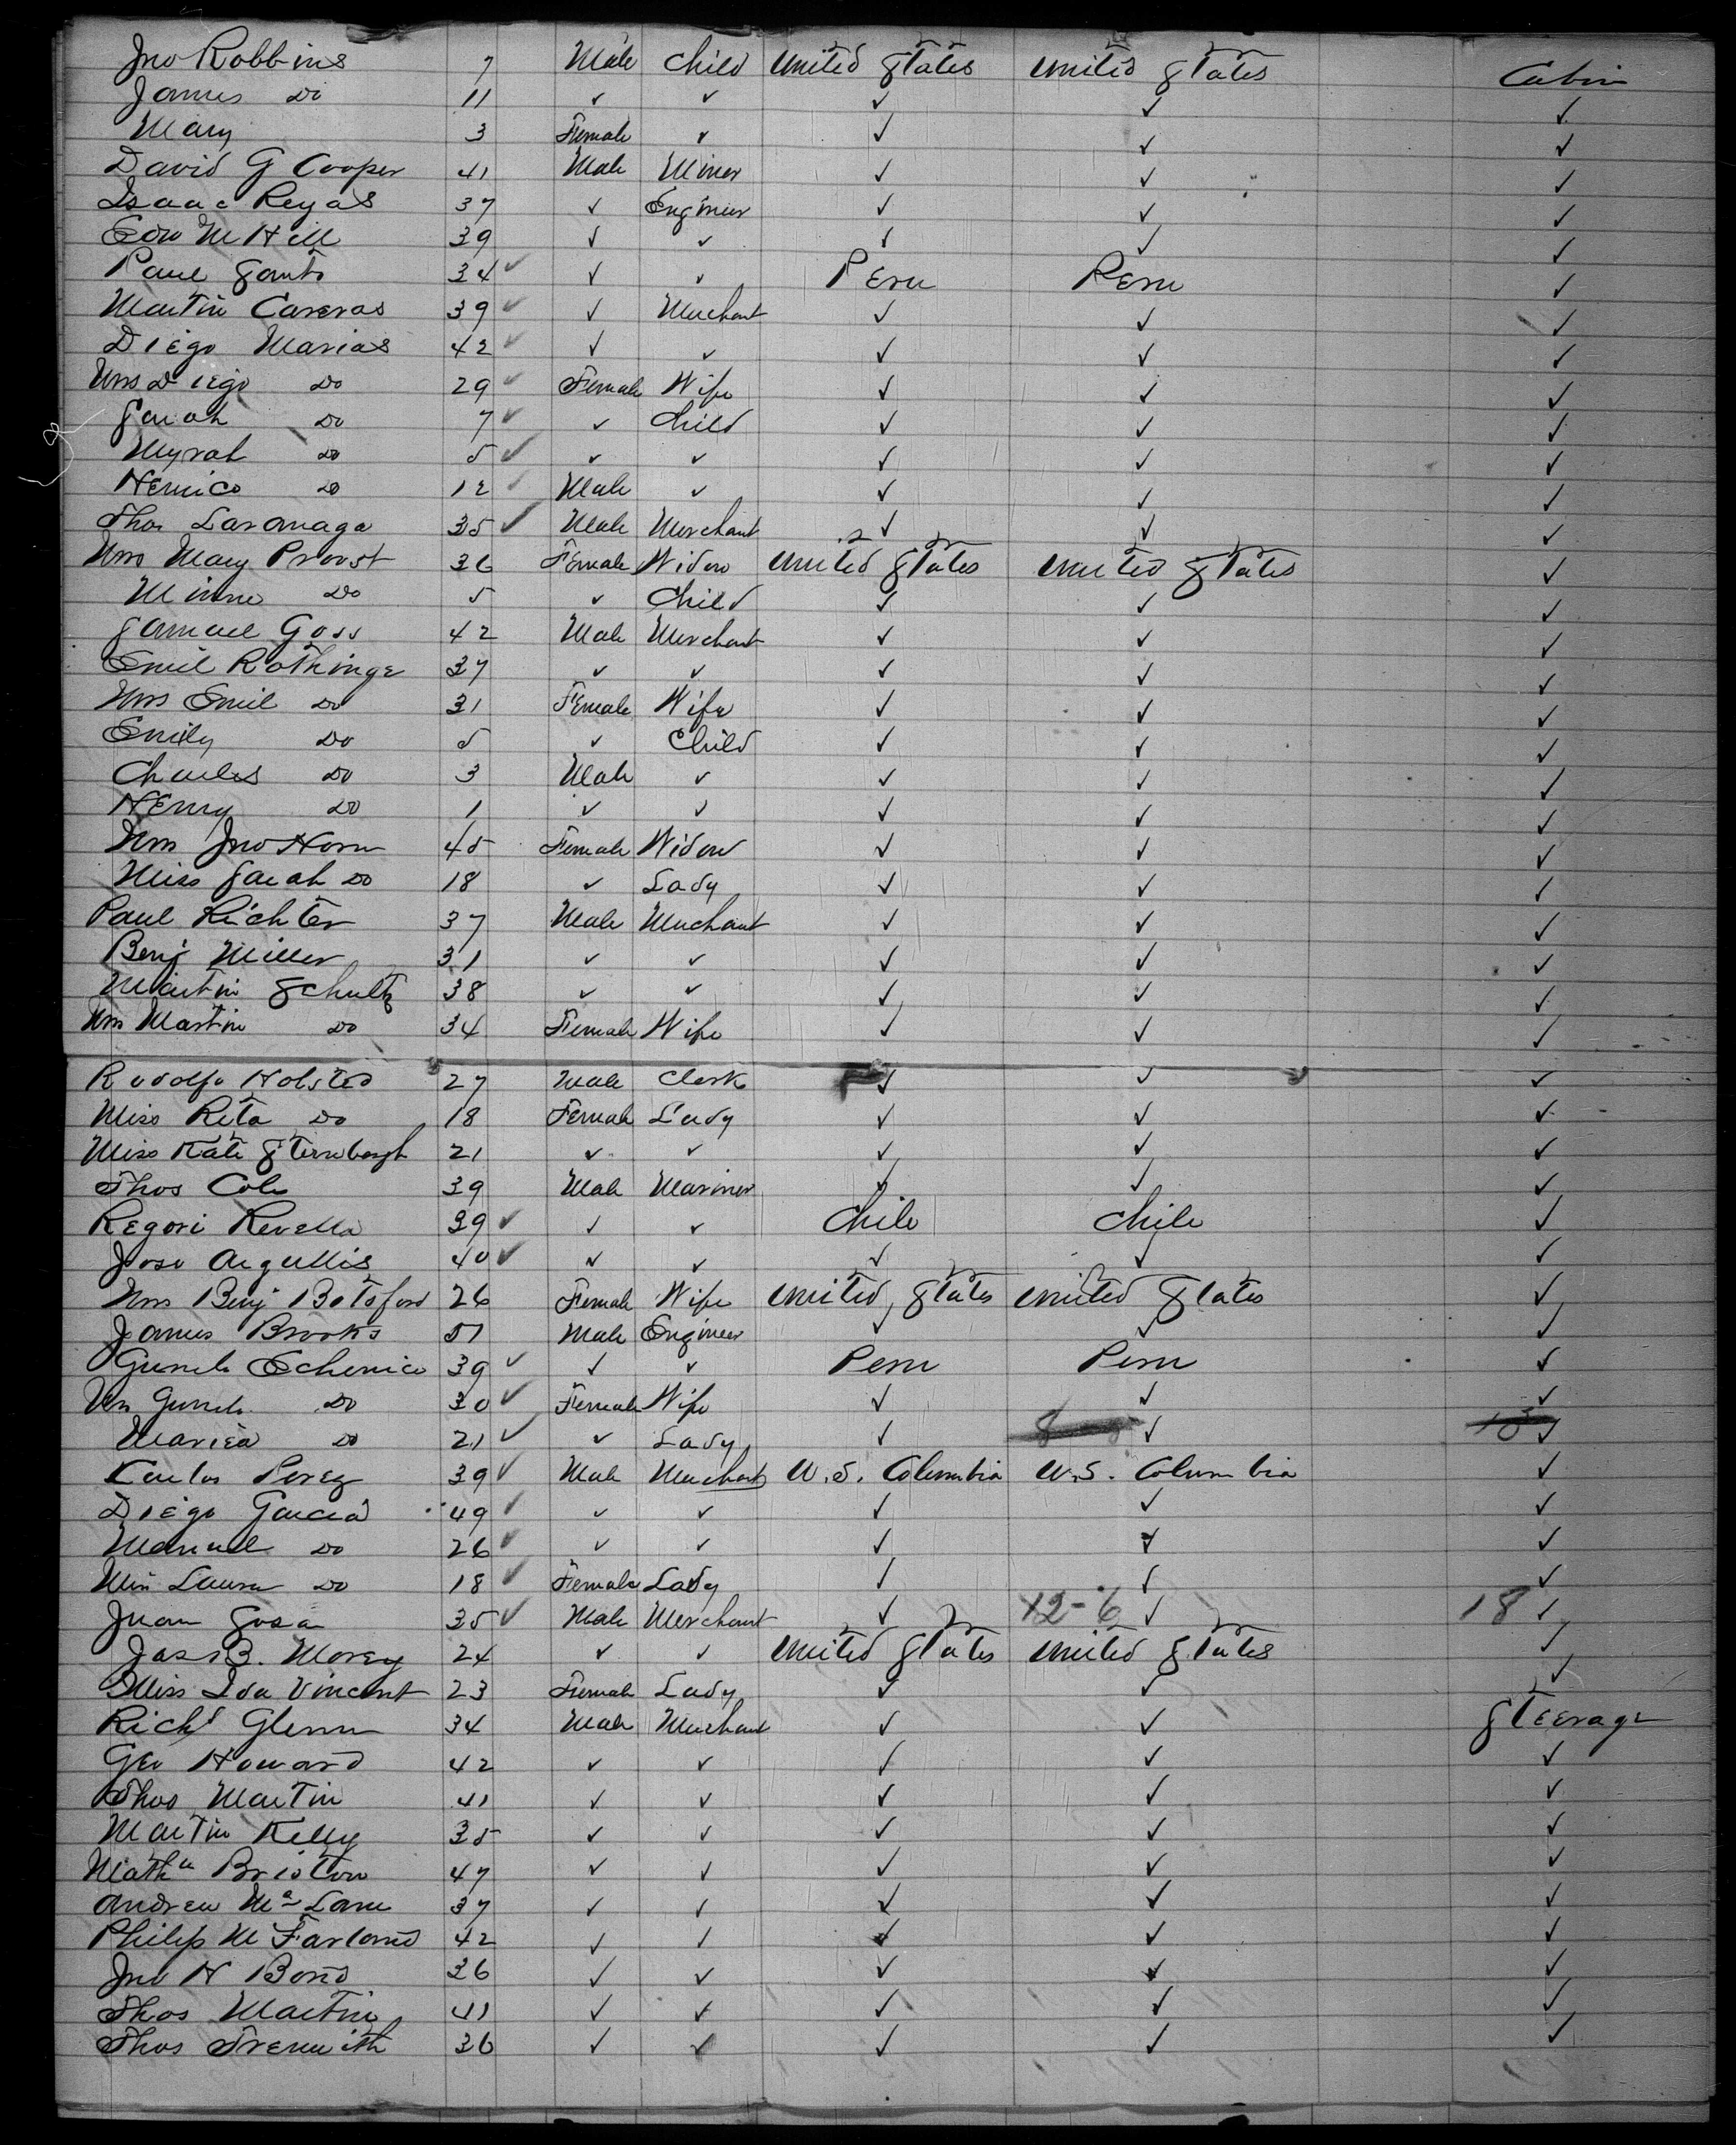 Jno Robbins 7 Male Child United States United States Cabin
James Do 11 ✓ ✓ ✓ ✓ ✓
Mary 3 Female ✓ ✓ ✓ ✓
David G Cooper 41 Male Miner ✓ ✓ ✓
Isaac Reyas 37 ✓ Engineer ✓ ✓ ✓
Edw M Hill 39 ✓ ✓ ✓ ✓ ✓
Paul 34 ✓ ✓ ✓ Peru Peru ✓
Martin Careras 39 ✓ ✓ Merchant ✓ ✓ ✓
Diego Marias 42 ✓ ✓ ✓ ✓ ✓ ✓
Mrs Diego Do 29 ✓ Female Wife ✓ ✓ ✓
Sarah Do 7 ✓ ✓ Child ✓ ✓ ✓
Myrah Do 5 ✓ ✓ ✓ ✓ ✓ ✓
Do 12 ✓ Male ✓ ✓ ✓ ✓
Thos 35 ✓ Male Merchant ✓ ✓ ✓
Mrs Mary Provost 36 Female Widow United States United States ✓
Minnie Do 5 ✓ Child ✓ ✓ ✓
Samuel Goss 42 Male Merchant ✓ ✓ ✓
Emil Rothinge 37 ✓ ✓ ✓ ✓ ✓
Mrs Emil Do 31 Female Wife ✓ ✓ ✓
Emily Do 5 ✓ Child ✓ ✓ ✓
Charles Do 3 Male ✓ ✓ ✓ ✓
Henry Do 1 ✓ ✓ ✓ ✓ ✓
Mrs Jno Horn 45 Female Widow ✓ ✓ ✓
Miss Sarah Do 18 ✓ Lady ✓ ✓ ✓
Paul Richter 37 Male Merchant ✓ ✓ ✓
Benj Miller 31 ✓ ✓ ✓ ✓ ✓
Martin Schultz 38 ✓ ✓ ✓ ✓ ✓
Mrs Martin Do 34 Female Wife ✓ ✓ ✓
Rudolfo Holsted 27 Male Clerk ✓ ✓ ✓
Miss Rita Do 18 Female Lady ✓ ✓ ✓
Miss Kate Sternbergh 21 ✓ ✓ ✓ ✓ ✓
Thos Cole 39 Male Mariner ✓ ✓ ✓
Regori Revella 39 ✓ ✓ ✓ Chile Chile ✓
Jose Argullis 40 ✓ ✓ ✓ ✓ ✓ ✓
Mrs Benj Botsford 26 Female Wife United States United States ✓
James Brooks 51 Male Engineer ✓ ✓ ✓
Echenico 39 ✓ ✓ ✓ Peru Peru ✓
Do 30 ✓ Female Wife ✓ ✓ ✓
Mariea Do 21 ✓ ✓ Lady ✓ ✓ ✓
Carlos Perez 39 ✓ Male Merchant U.S. Columbia U.S. Columbia ✓
Diego Garcia 49 ✓ ✓ ✓ ✓ ✓ ✓
Manuel Do 26 ✓ ✓ ✓ ✓ ✓ ✓
Miss Laura Do 18 ✓ Female Lady ✓ ✓ ✓
Juan Sosa 35 ✓ Male Merchant ✓ 12-6 ✓ 18 ✓
Jas B. Morey 24 ✓ ✓ United States United States ✓
Miss Ida Vincent 23 Female Lady ✓ ✓ ✓
Richd Glenn 34 Male Merchant ✓ ✓ Steerage
Geo Howard 42 ✓ ✓ ✓ ✓ ✓
Thos Martin 41 ✓ ✓ ✓ ✓ ✓
Martin Kelly 35 ✓ ✓ ✓ ✓ ✓
Mathw Bristow 47 ✓ ✓ ✓ ✓ ✓
Andrew Mc Lane 37 ✓ ✓ ✓ ✓ ✓
Philip M Farland 42 ✓ ✓ ✓ ✓ ✓
Jno H Bond 26 ✓ ✓ ✓ ✓ ✓
Thos Martin 41 ✓ ✓ ✓ ✓ ✓
Thos Trenwith 36 ✓ ✓ ✓ ✓ ✓